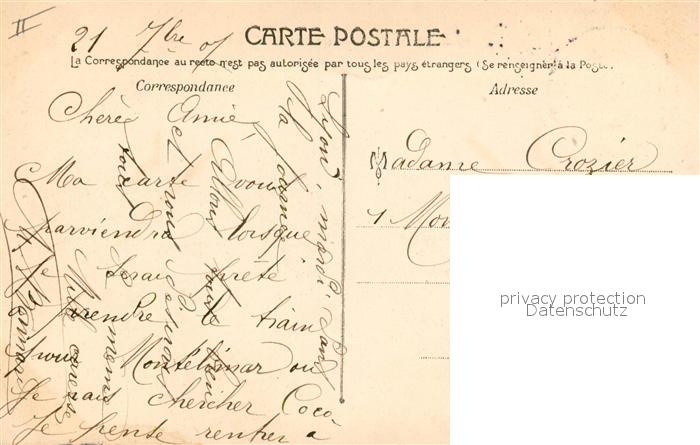 II
21 7bre 07
CARTE POSTALE
La Correspondance au recto n'est pas autorisée par tous les pays étrangers (Se renseigner à la Poste.
Correspondance
Adresse
Chère Amie,
Ma carte vous
parviendra lorsque
je serai prête
à prendre le train
pour Montélimar ou
je vais chercher Coco.
Je pense rentrer à
Lyon, mardi, dans
la
Allons
tout bien
et vous
Mille caresses
Madame Crozier
1 Mon
privacy protection
Datenschutz